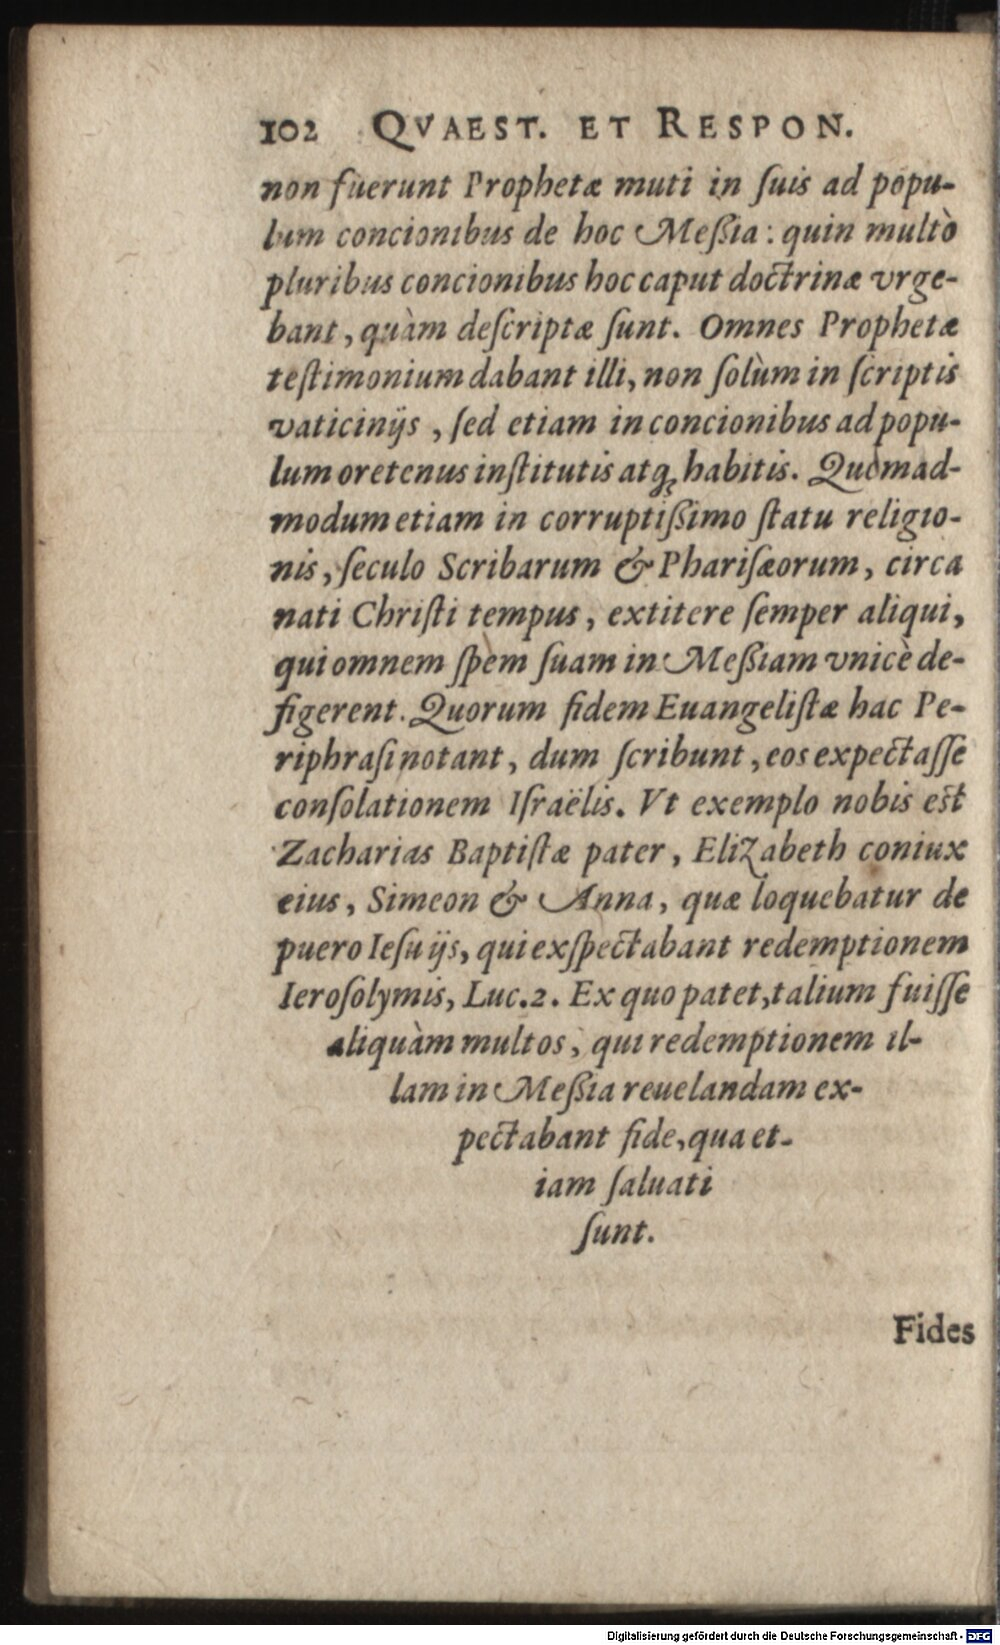 102 QVAEST. ET RESPON.
non fuerunt Prophetæ muti in ſuis ad popu-
lum concionibus de hoc Meßia: quin multò
pluribus concionibus hoc caput doctrinæ vrge-
bant, quàm deſcriptæ ſunt. Omnes Prophetæ
teſtimonium dabant illi, non ſolùm in ſcriptis
vaticinijs, ſed etiam in concionibus ad popu-
lum oretenus inſtitutis atq; habitis. Quemad-
modum etiam in corruptißimo ſtatu religio-
nis, ſeculo Scribarum & Phariſæorum, circa
nati Chriſti tempus, extitere ſemper aliqui,
qui omnem ſpem ſuam in Meßiam vnicè de-
figerent. Quorum fidem Euangeliſtæ hac Pe-
riphraſi notant, dum ſcribunt, eos expectaſſe
conſolationem Iſraëlis. Vt exemplo nobis eſt
Zacharias Baptiſtæ pater, Elizabeth coniux
eius, Simeon & Anna, quæ loquebatur de
puero Ieſu ijs, qui exſpectabant redemptionem
Ieroſolymis, Luc.2. Ex quo patet, talium fuiſſe
aliquàm multos, qui redemptionem il-
lam in Meßia reuelandam ex-
pectabant fide, qua et-
iam ſaluati
ſunt.
Fides
Digitalisierung gefördert durch die Deutsche Forschungsgemeinschaft - DFG